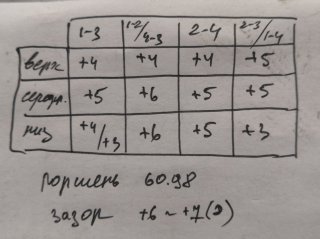 1-3 1-2/4-3 2-4 2-3/1-4
верх +4 +4 +4 +5
серед. +5 +6 +5 +5
низ +4/+3 +6 +5 +3
поршень 60.98
зазор +6 ~ +7(2)